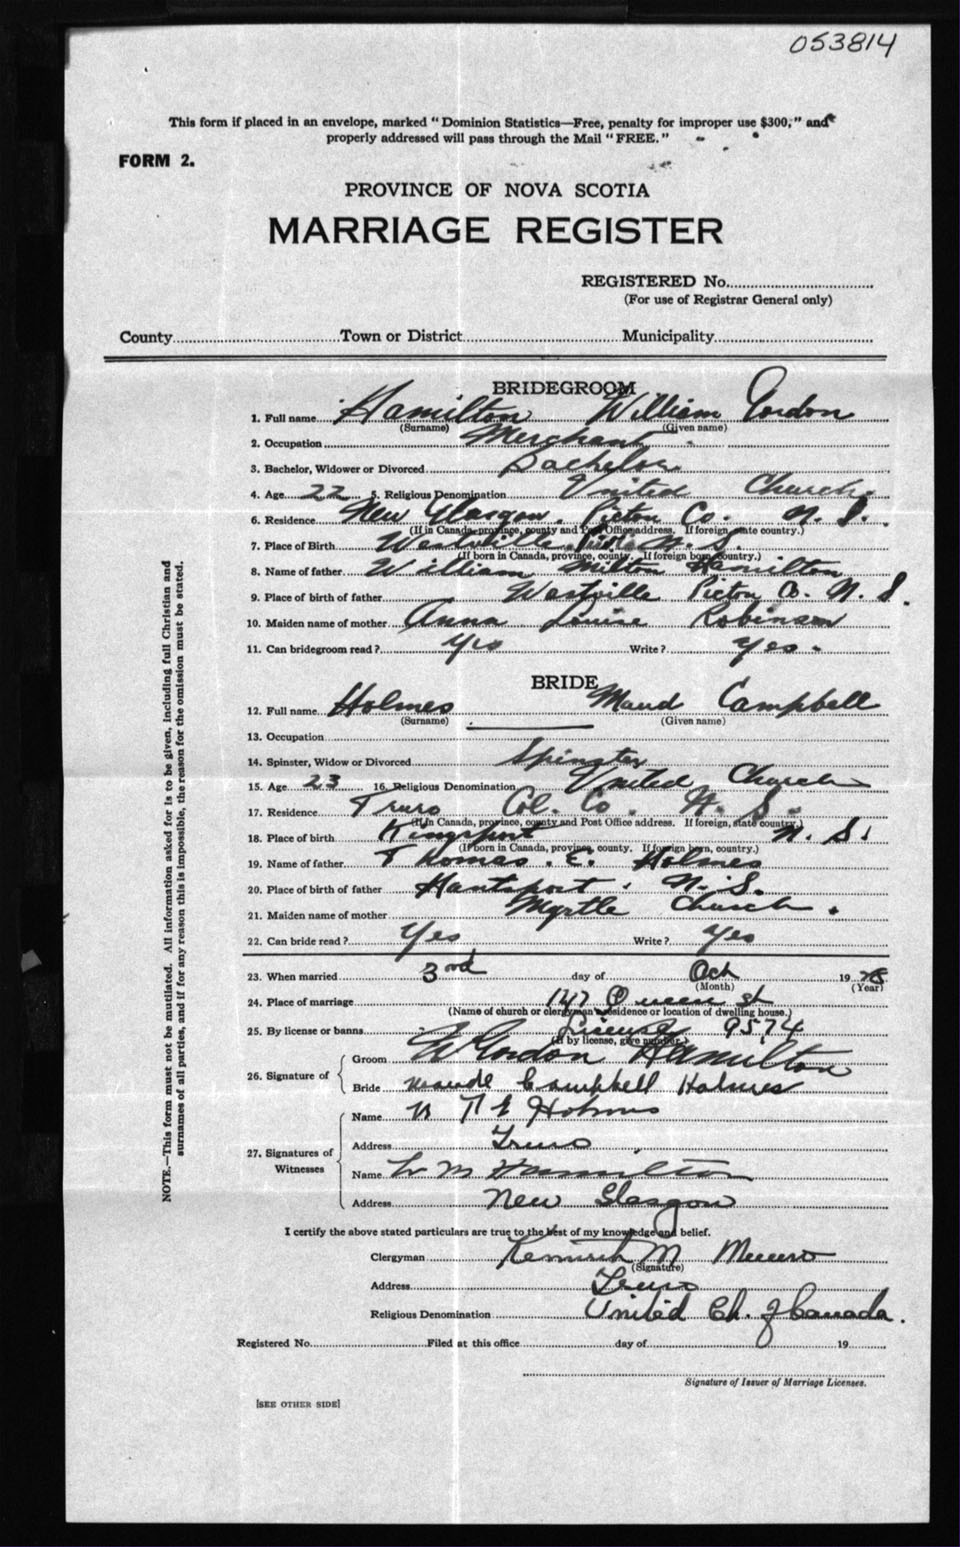 053814
This form if placed in an envelope, marked "Dominion Statistics—Free, penalty for improper use $300," and
properly addressed will pass through the Mail "FREE."
FORM 2.
PROVINCE OF NOVA SCOTIA
MARRIAGE REGISTER
REGISTERED No.
(For use of Registrar General only)
County Town or District Municipality
BRIDEGROOM
1. Full name Hamilton William Gordon
(Surname) (Given name)
2. Occupation Merchant
3. Bachelor, Widower or Divorced Bachelor
4. Age 22 5. Religious Denomination United Church
6. Residence New Glasgow, Pictou Co. N. S.
(If in Canada, province, county and Post Office address. If foreign, state country.)
7. Place of Birth Westville Pictou N. S.
(If born in Canada, province, county. If foreign born, country.)
8. Name of father William Milton Hamilton
9. Place of birth of father Westville Pictou Co. N. S.
10. Maiden name of mother Anna Louise Robinson
11. Can bridegroom read? Yes Write? Yes.
BRIDE
12. Full name Holmes Maud Campbell
(Surname) (Given name)
13. Occupation
14. Spinster, Widow or Divorced Spinster
15. Age 23 16. Religious Denomination United Church
17. Residence Truro Col. Co. N. S.
(If in Canada, province, county and Post Office address. If foreign, state country.)
18. Place of birth Kingsport N. S.
(If born in Canada, province, county. If foreign born, country.)
19. Name of father Thomas. E. Holmes
20. Place of birth of father Hantsport. N. S.
21. Maiden name of mother Myrtle Church.
22. Can bride read? Yes Write? Yes
23. When married 3rd day of Oct 19
(Month) (Year)
24. Place of marriage 147 Queen st
(Name of church or clergyman's residence or location of dwelling house.)
25. By license or banns License 9574
(If by license, give number.)
26. Signature of
Groom W Gordon Hamilton
Bride Maude Campbell Holmes
27. Signatures of Witnesses
Name Holmes
Address Truro
Name W M Hamilton
Address New Glasgow
I certify the above stated particulars are true to the best of my knowledge and belief.
Clergyman Kenneth M Munro
(Signature)
Address Truro
Religious Denomination United Ch. of Canada.
Registered No. Filed at this office day of 19
Signature of Issuer of Marriage Licenses.
[SEE OTHER SIDE]
NOTE.—This form must not be mutilated. All information asked for is to be given, including full Christian and
surnames of all parties, and if for any reason this is impossible, the reason for the omission must be stated.